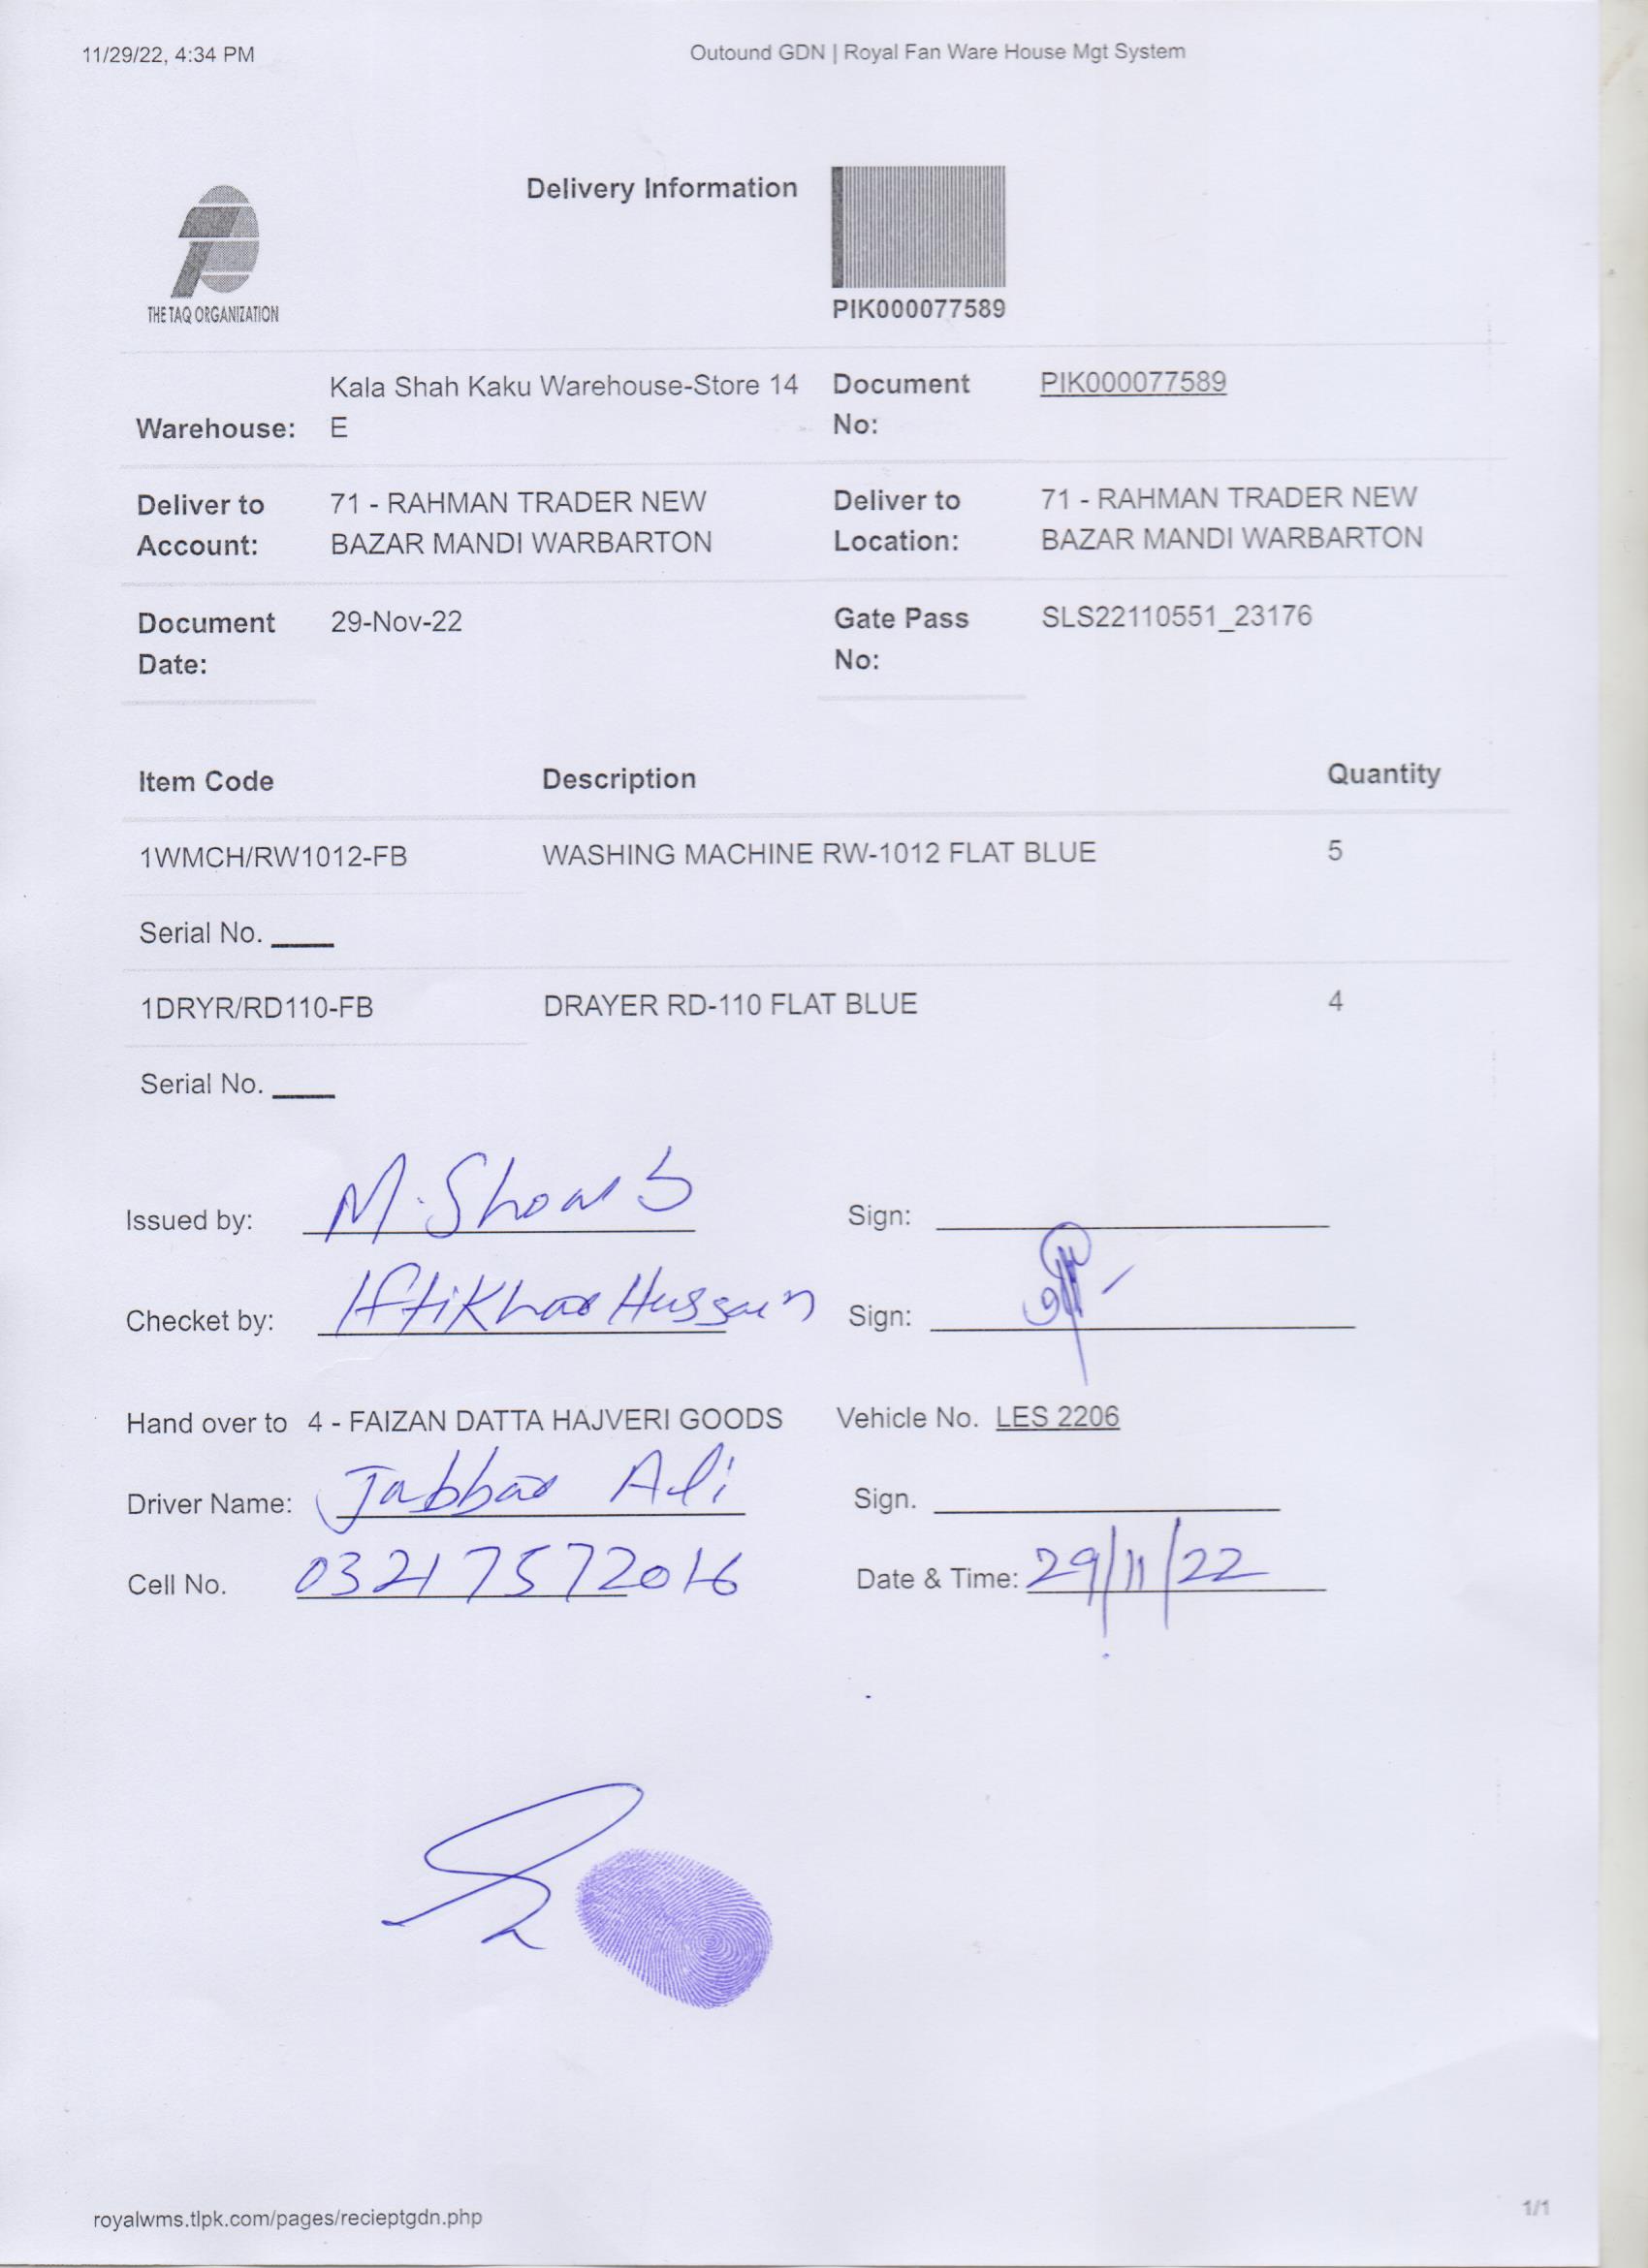 11/29/22, 4:34 PM
Outound GDN | Royal Fan Ware House Mgt System
THE TAQ ORGANIZATION
Delivery Information
PIK000077589
Warehouse: Kala Shah Kaku Warehouse-Store 14
E
Document No: PIK000077589
Deliver to Account: 71 - RAHMAN TRADER NEW
BAZAR MANDI WARBARTON
Deliver to Location: 71 - RAHMAN TRADER NEW
BAZAR MANDI WARBARTON
Document Date: 29-Nov-22
Gate Pass No: SLS22110551_23176
Item Code Description Quantity
1WMCH/RW1012-FB WASHING MACHINE RW-1012 FLAT BLUE 5
Serial No.
1DRYR/RD110-FB DRAYER RD-110 FLAT BLUE 4
Serial No.
Issued by: M. Sign:
Checket by: Iftikhar Hussain Sign:
Hand over to 4 - FAIZAN DATTA HAJVERI GOODS Vehicle No. LES 2206
Driver Name: Jabbar Ali Sign.
Cell No. 03217572016 Date & Time: 29/11/22
royalwms.tlpk.com/pages/recieptgdn.php
1/1